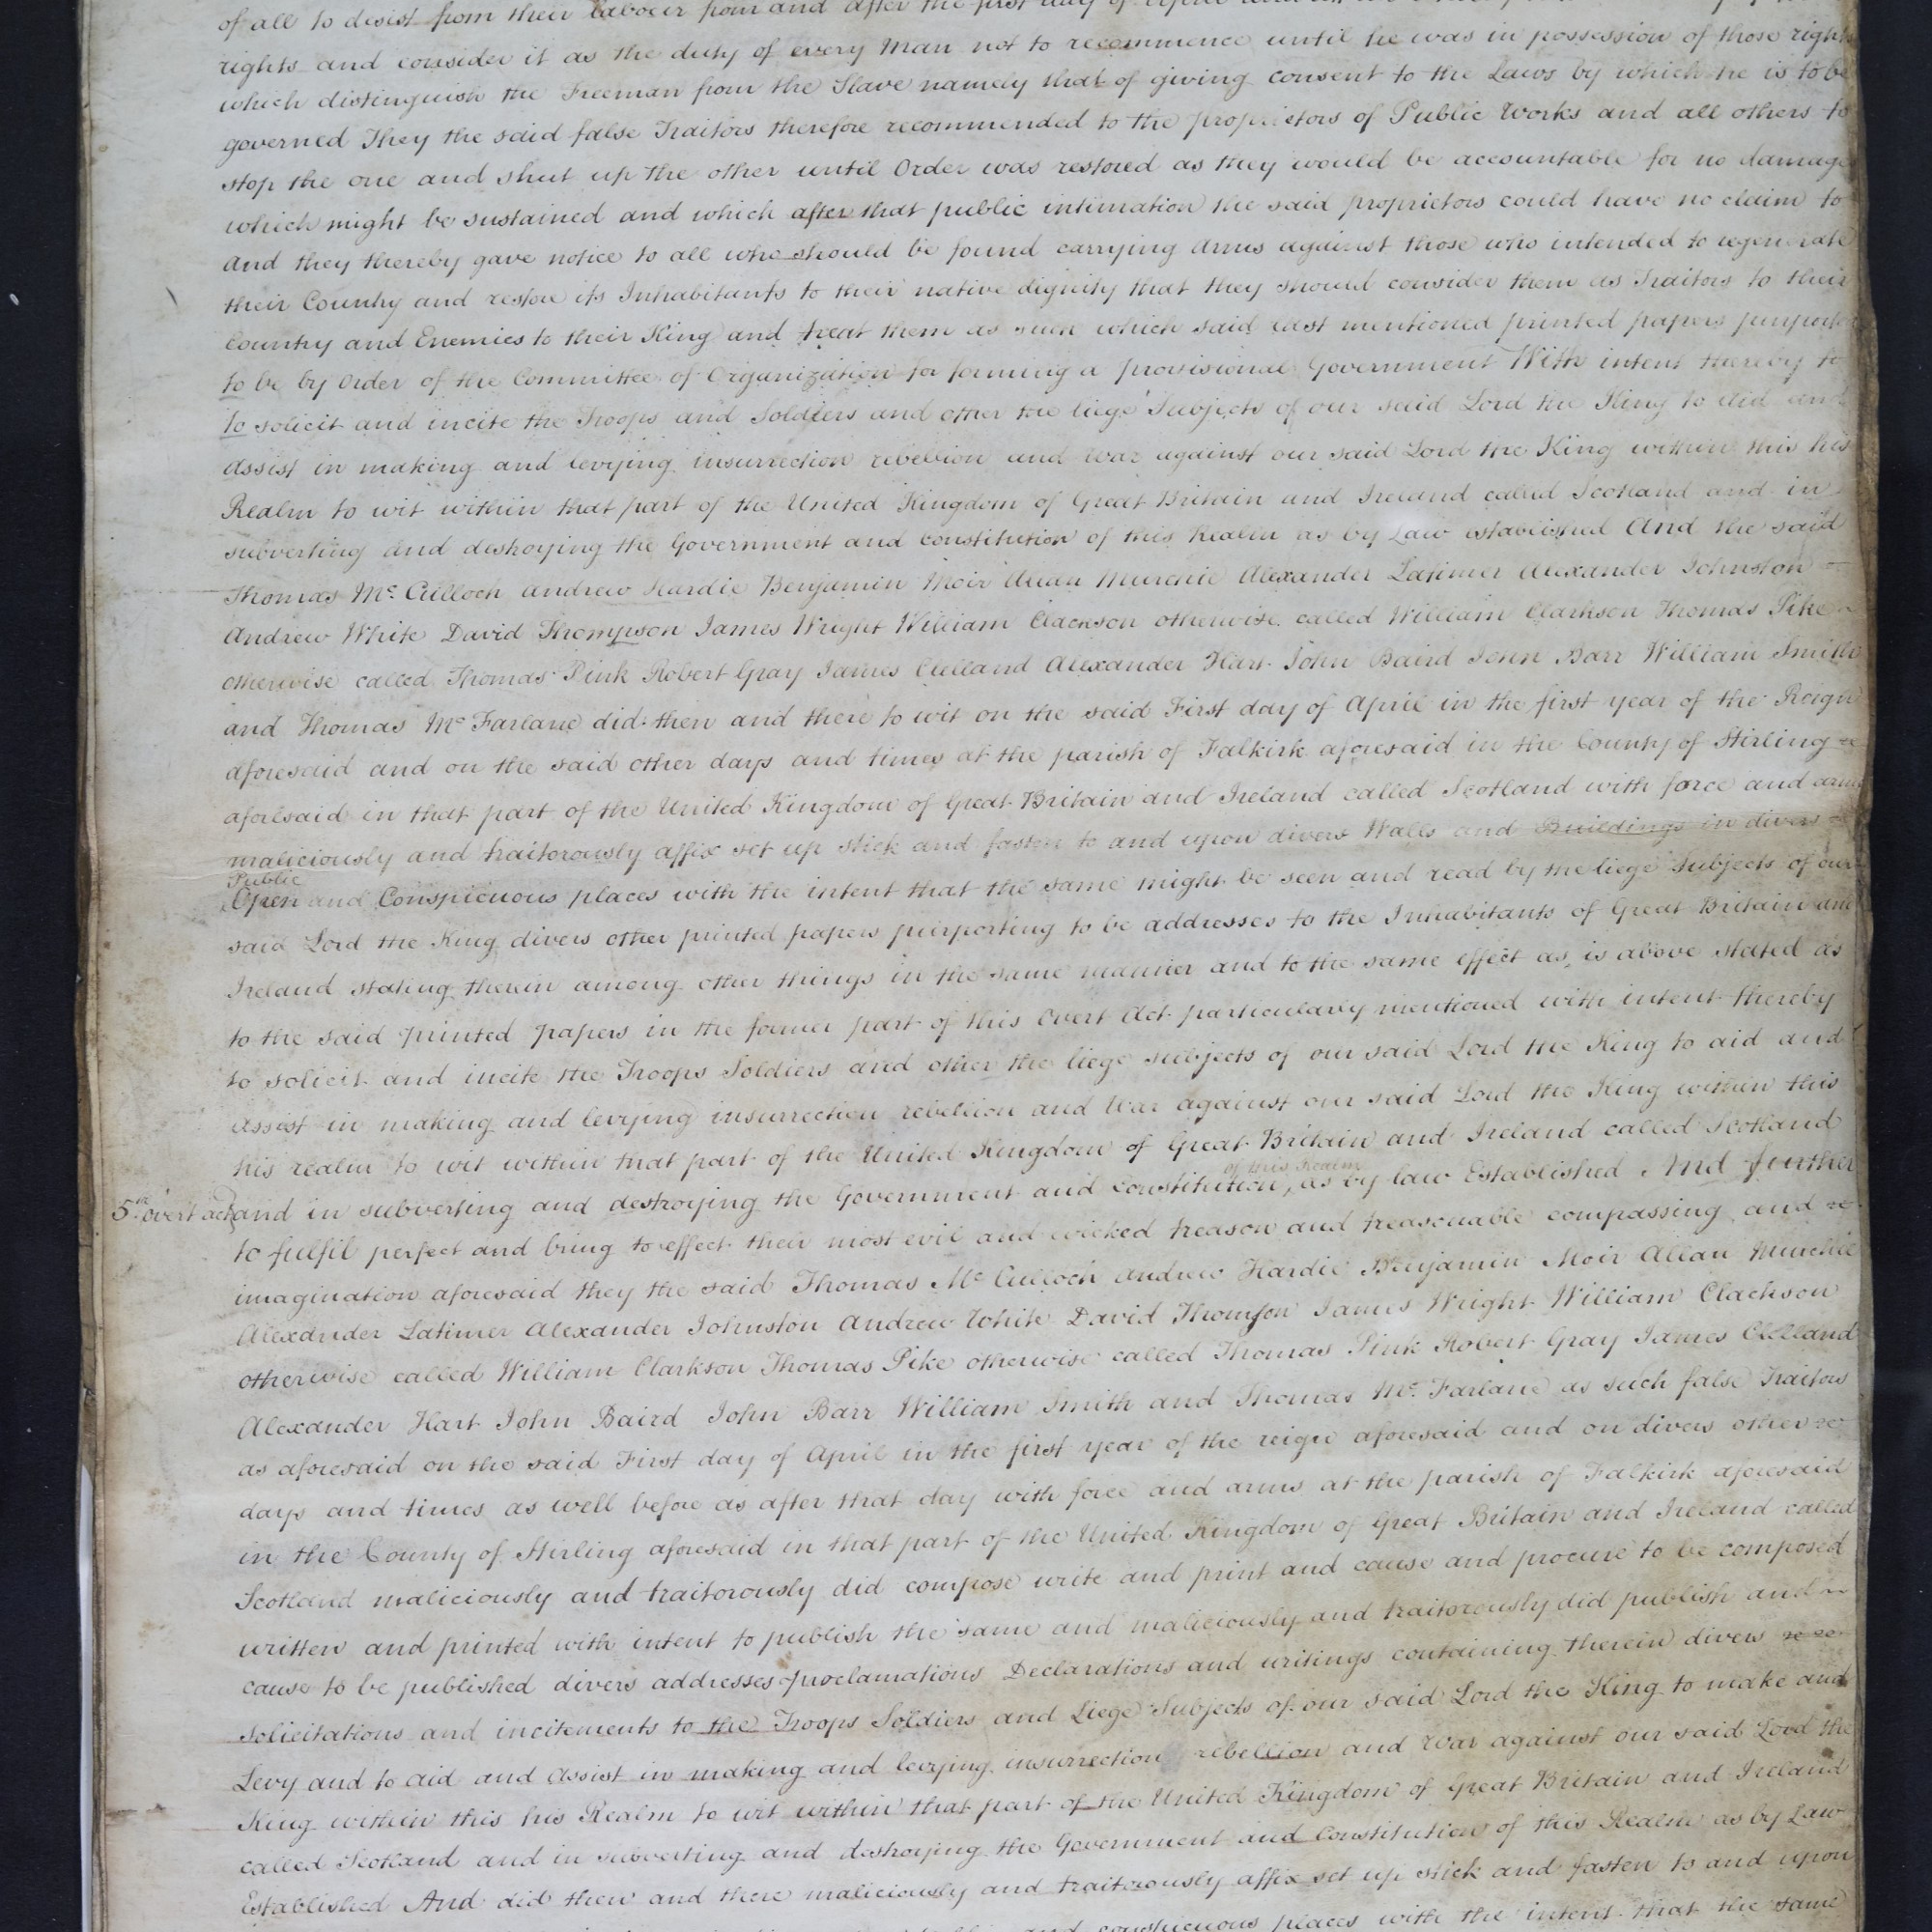 of all to desist from their labour from and after the first day of April
rights and consider it as the duty of every Man not to recommence until he was in possession of those rights
which distinguish the Freeman from the Slave namely that of giving consent to the Laws by which he is to be
governed They the said false Traitors therefore recommended to the proprietors of Public Works and all others to
stop the one and shut up the other until Order was restored as they would be accountable for no damages
which might be sustained and which after that public intimation the said proprietors could have no claim to
And they thereby gave notice to all who should be found carrying Arms against those who intended to regenerate
their Country and restore its Inhabitants to their native dignity that they should consider them as Traitors to their
Country and Enemies to their King and treat them as such which said last mentioned printed papers purported
to be by Order of the Committee of Organization for forming a provisional Government With intent thereby to
to solicit and incite the Troops and Soldiers and other the liege Subjects of our said Lord the King to Aid and
Assist in making and levying insurrection rebellion and War against our said Lord the King within this his
Realm to wit within that part of the United Kingdom of Great Britain and Ireland called Scotland and in
subverting and destroying the Government and constitution of this Realm as by Law established And the said
Thomas Mc Culloch Andrew Hardie Benjamin Moir Allan Murchie Alexander Latimer Alexander Johnston
Andrew White David Thompson James Wright William Clackson otherwise called William Clarkson Thomas Pike
otherwise called Thomas Pink Robert Gray James Clelland Alexander Hart John Baird John Barr William Smith
and Thomas Mc Farlane did then and there to wit on the said First day of April in the first year of the Reign
aforesaid and on the said other days and times at the parish of Falkirk aforesaid in the County of Stirling
aforesaid in that part of the United Kingdom of Great Britain and Ireland called Scotland with force and arms
maliciously and traitorously affix set up stick and fasten to and upon divers Walls and Buildings in divers
Public
Open and Conspicuous places with the intent that the same might be seen and read by the liege Subjects of our
said Lord the King divers other printed papers purporting to be addresses to the Inhabitants of Great Britain and
Ireland stating therein among other things in the same manner and to the same effect as is above stated as
to the said printed papers in the former part of this Overt Act particularly mentioned with intent thereby
to solicit and incite the Troops Soldiers and other the liege subjects of our said Lord the King to aid and
Assist in making and levying insurrection rebellion and War against our said Lord the King within this
his realm to wit within that part of the United Kingdom of Great Britain and Ireland called Scotland
of this Realm
5th overt act and in subverting and destroying the Government and constitution, as by law Established And further
to fulfil perfect and bring to effect their most evil and wicked treason and treasonable compassing and
imagination aforesaid they the said Thomas Mc Culloch Andrew Hardie Benjamin Moir Allan Murchie
Alexander Latimer Alexander Johnston Andrew White David Thomson James Wright William Clackson
otherwise called William Clarkson Thomas Pike otherwise called Thomas Pink Robert Gray James Clelland
Alexander Hart John Baird John Barr William Smith and Thomas Mc Farlane as such false Traitors
as aforesaid on the said First day of April in the first year of the reign aforesaid and on divers other
days and times as well before as after that day with force and arms at the parish of Falkirk aforesaid
in the County of Stirling aforesaid in that part of the United Kingdom of Great Britain and Ireland called
Scotland maliciously and traitorously did compose write and print and cause and procure to be composed
written and printed with intent to publish the same and maliciously and traitorously did publish and
cause to be published divers addresses proclamations Declarations and writings containing therein divers
solicitations and incitements to the Troops Soldiers and Liege Subjects of our said Lord the King to make and
Levy and to aid and Assist in making and levying insurrection rebellion and War against our said Lord the
King within this his Realm to wit within that part of the United Kingdom of Great Britain and Ireland
called Scotland and in subverting and destroying the Government and Constitution of this Realm as by Law
Established And did then and there maliciously and traitorously affix set up stick and fasten to and upon
and conspicuous places with the intent that the same